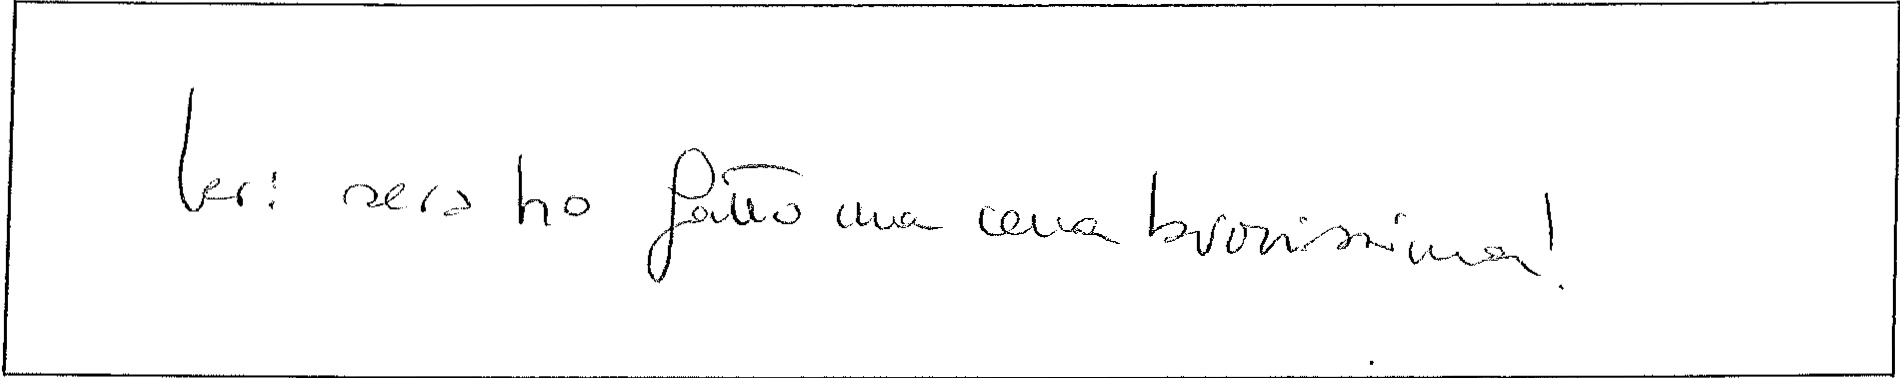 Ieri sera ho fatto una cena buonissima!